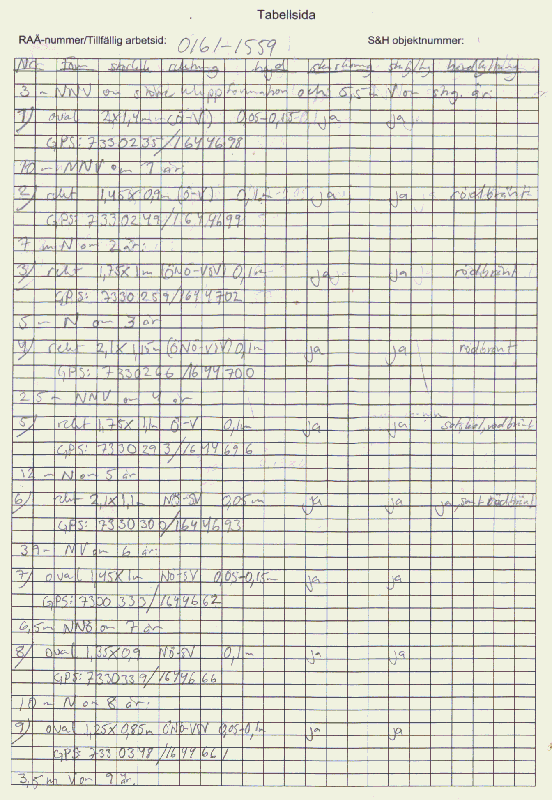 Tabellsida
RAÄ-nummer/Tillfällig arbetsid: 0161-1559 S&H objektnummer:
Nr: Form storlek riktning höjd
3 m NNV om större klippformation och 5,5 m V om stig. är:
1) oval 2x1,4m (Ö-V) 0,05-0,15 ja ja
GPS: 7330235/1644698
10 m NNV om 1 är:
2) rekt 1,45x0,9m (Ö-V) 0,1m ja ja rödbränt
GPS: 7330249/1644699
7 m N om 2 är:
3) rekt 1,75x1m (ÖNÖ-VSV) 0,1m ja ja rödbränt
GPS: 7330259/1644702
5 m N om 3 är
4) rekt 2,1x1,15m (ÖNÖ-V) 0,1m ja ja rödbränt
GPS: 7330266/1644700
25 m NNV om 4 är
5) rekt 1,75x1m Ö-V 0,1m ja ja sot,kol,rödbränt
GPS: 7330293/1644696
12 m N om 5 är
6) rekt 2,1x1,1m NÖ-SV 0,05m ja ja ja, rödbränt
GPS: 7330300/1644693
39 m NV om 6 är:
7) oval 1,45x1m NÖ-SV 0,05-0,15m ja ja
GPS: 7330333/1644662
6,5m NNÖ om 7 är
8) oval 1,35x0,9 NÖ-SV 0,1m ja ja
GPS: 7330339/1644666
10 m N om 8 är:
9) oval 1,25x0,85m ÖNÖ-VSV 0,05-0,1m ja ja
GPS: 7330348/1644661
3,5 m V om 9 är.